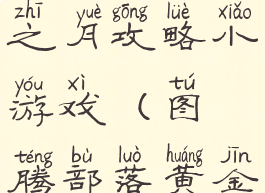 zhī yuè gōng lüè xiǎo
之月攻略小
yóu xì tú
游戏（图
téng bù luò huáng jīn
腾部落黄金